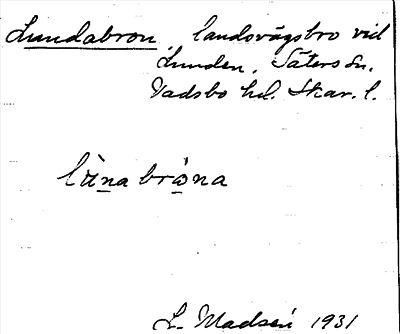 Lundabron, landsvägsbro vid
Lunden, Säters sn,
Vadsbo hd. Skar. l.
lùnabrò̤na
L. Madsén 1931